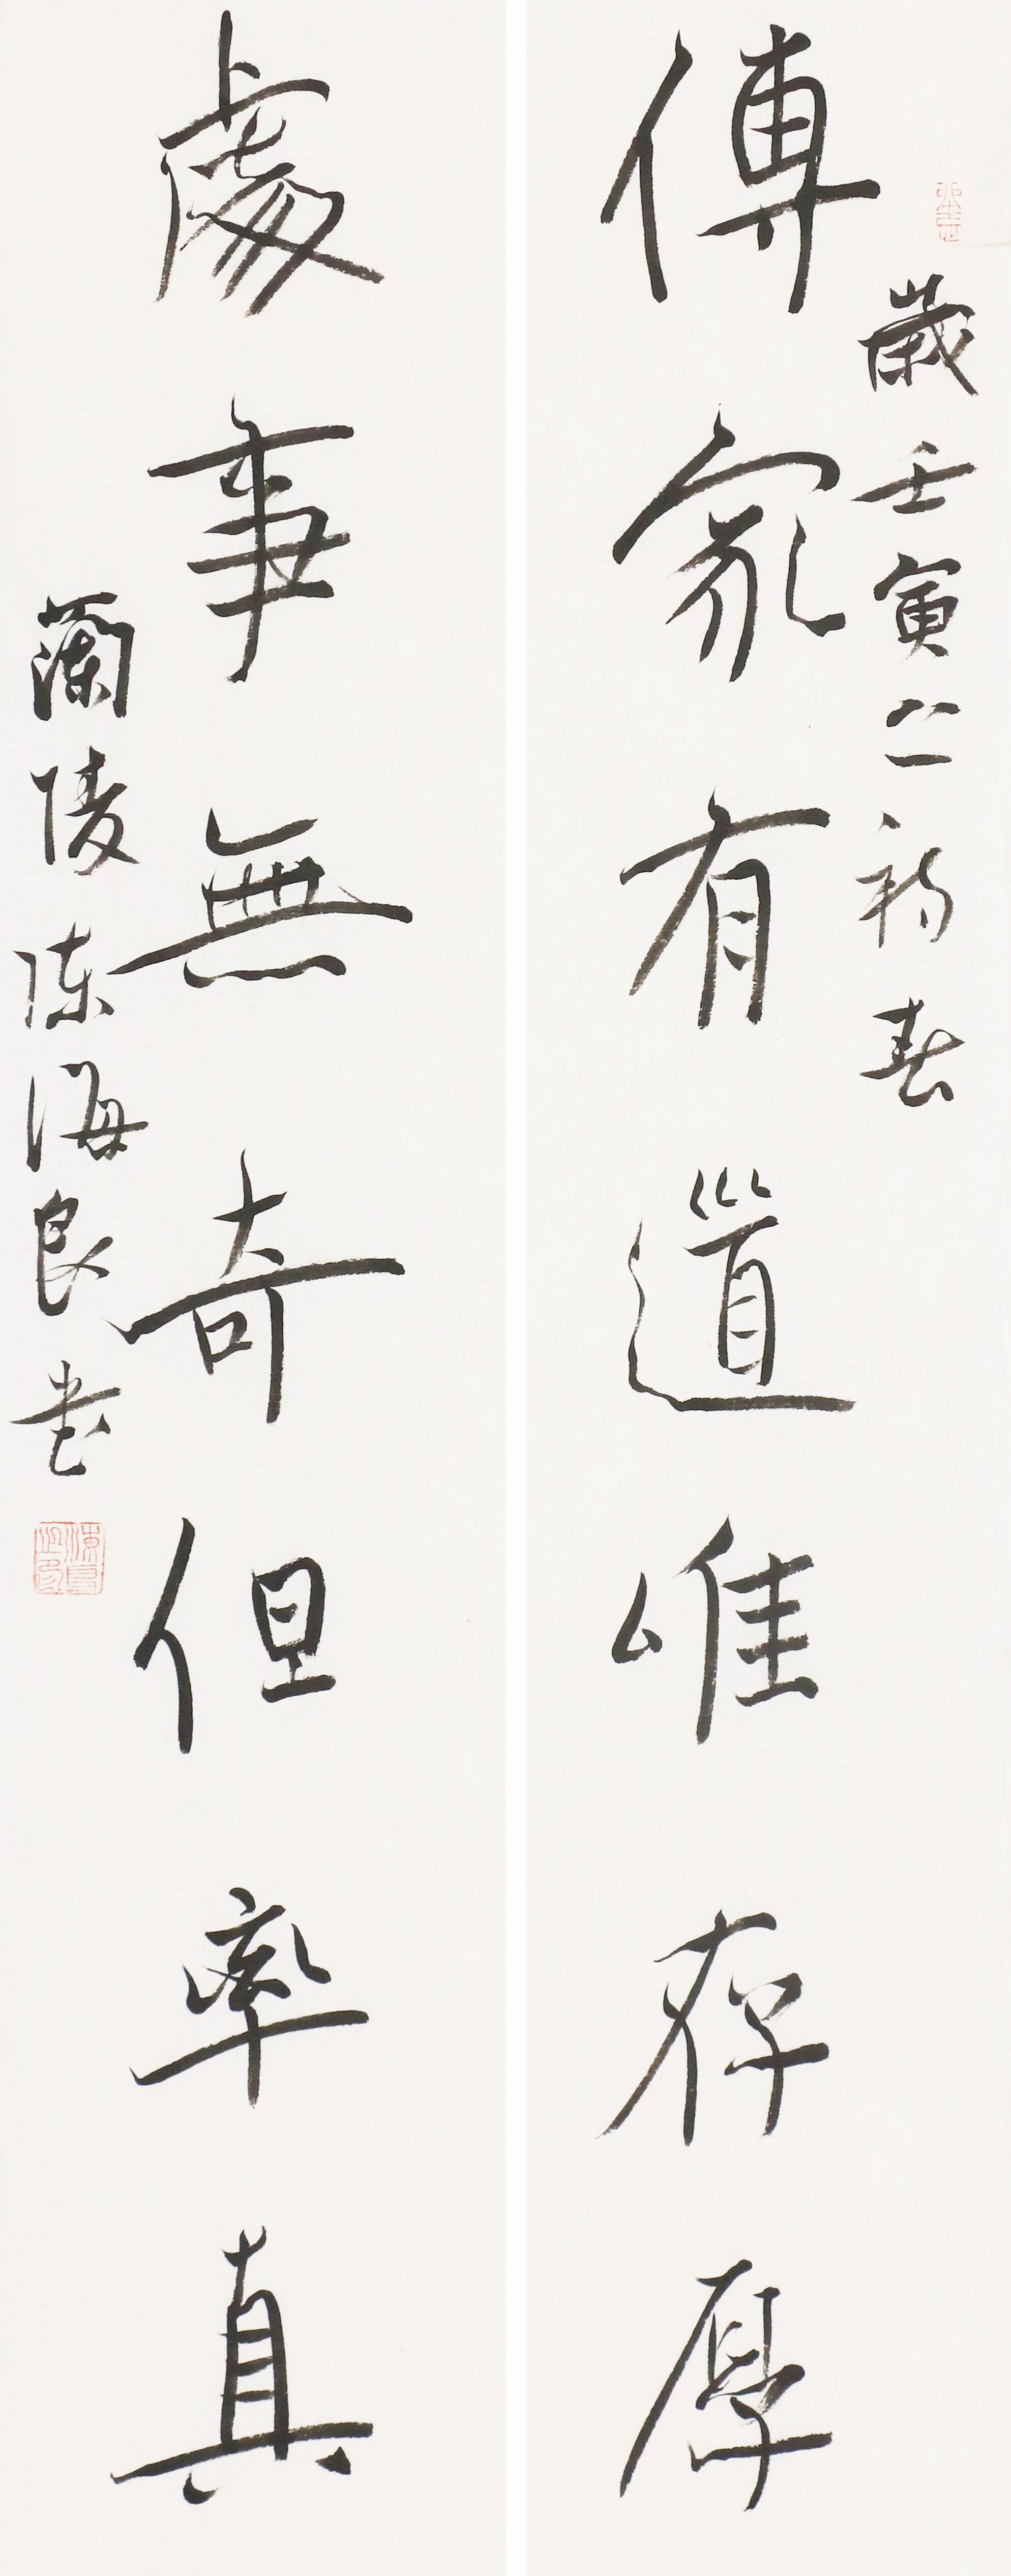 歲壬寅之初春
傳家有道唯存厚
處事無奇但率真
蘭陵陳海良書